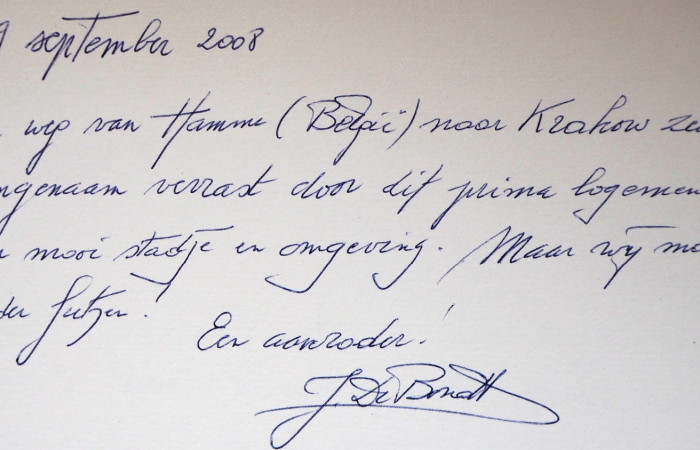 9 september 2008
weg van Hamme (België) naar Krakow ze
ngenaam verrast door dit prima logemen
n mooi stadje en omgeving. Maar wij mo
der fietzen!
Een aanrader!
J. De Bondt